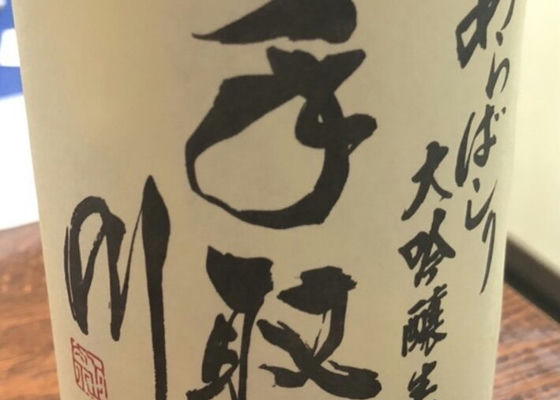 あらばしり
大吟醸生
手取
川